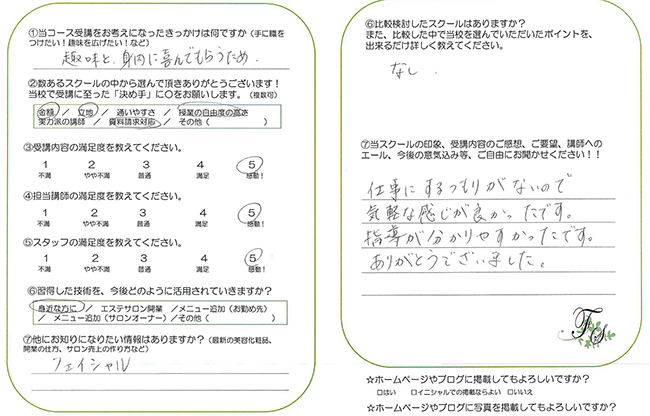 ①当コース受講をお考えになったきっかけは何ですか(手に職を
つけたい!趣味を広げたい!など)
趣味と、身内に喜んでもらうため.
②数あるスクールの中から選んで頂きありがとうございます!
当校で受講に至った「決め手」に○をお願いします。(複数可)
金額 / 立地 / 通いやすさ / 授業の自由度の高さ
実力派の講師 / 資料請求対応 / その他( )
③受講内容の満足度を教えてください。
1 2 3 4 5
不満 やや不満 普通 満足 感動!
④担当講師の満足度を教えてください。
1 2 3 4 5
不満 やや不満 普通 満足 感動!
⑤スタッフの満足度を教えてください。
1 2 3 4 5
不満 やや不満 普通 満足 感動!
⑥習得した技術を、今後どのように活用されていきますか?
身近な方に / エステサロン開業 /メニュー追加(お勤め先)
/ メニュー追加(サロンオーナー)/その他( )
⑦他にお知りになりたい情報はありますか?(最新の美容化粧品、
開業の仕方、サロン売上の作り方など)
フェイシャル
⑥比較検討したスクールはありますか?
また、比較した中で当校を選んでいただいたポイントを、
出来るだけ詳しく教えてください。
なし.
⑦当スクールの印象、受講内容のご感想、ご要望、講師への
エール、今後の意気込み等、ご自由にお聞かせください!!
仕事にするつもりがないので
気軽な感じが良かったです。
指導が分かりやすかったです。
ありがとうございました。
FS
☆ホームページやブログに掲載してもよろしいですか?
□はい □イニシャルでの掲載ならよい □いいえ
☆ホームページやブログに写真を掲載してもよろしいですか?